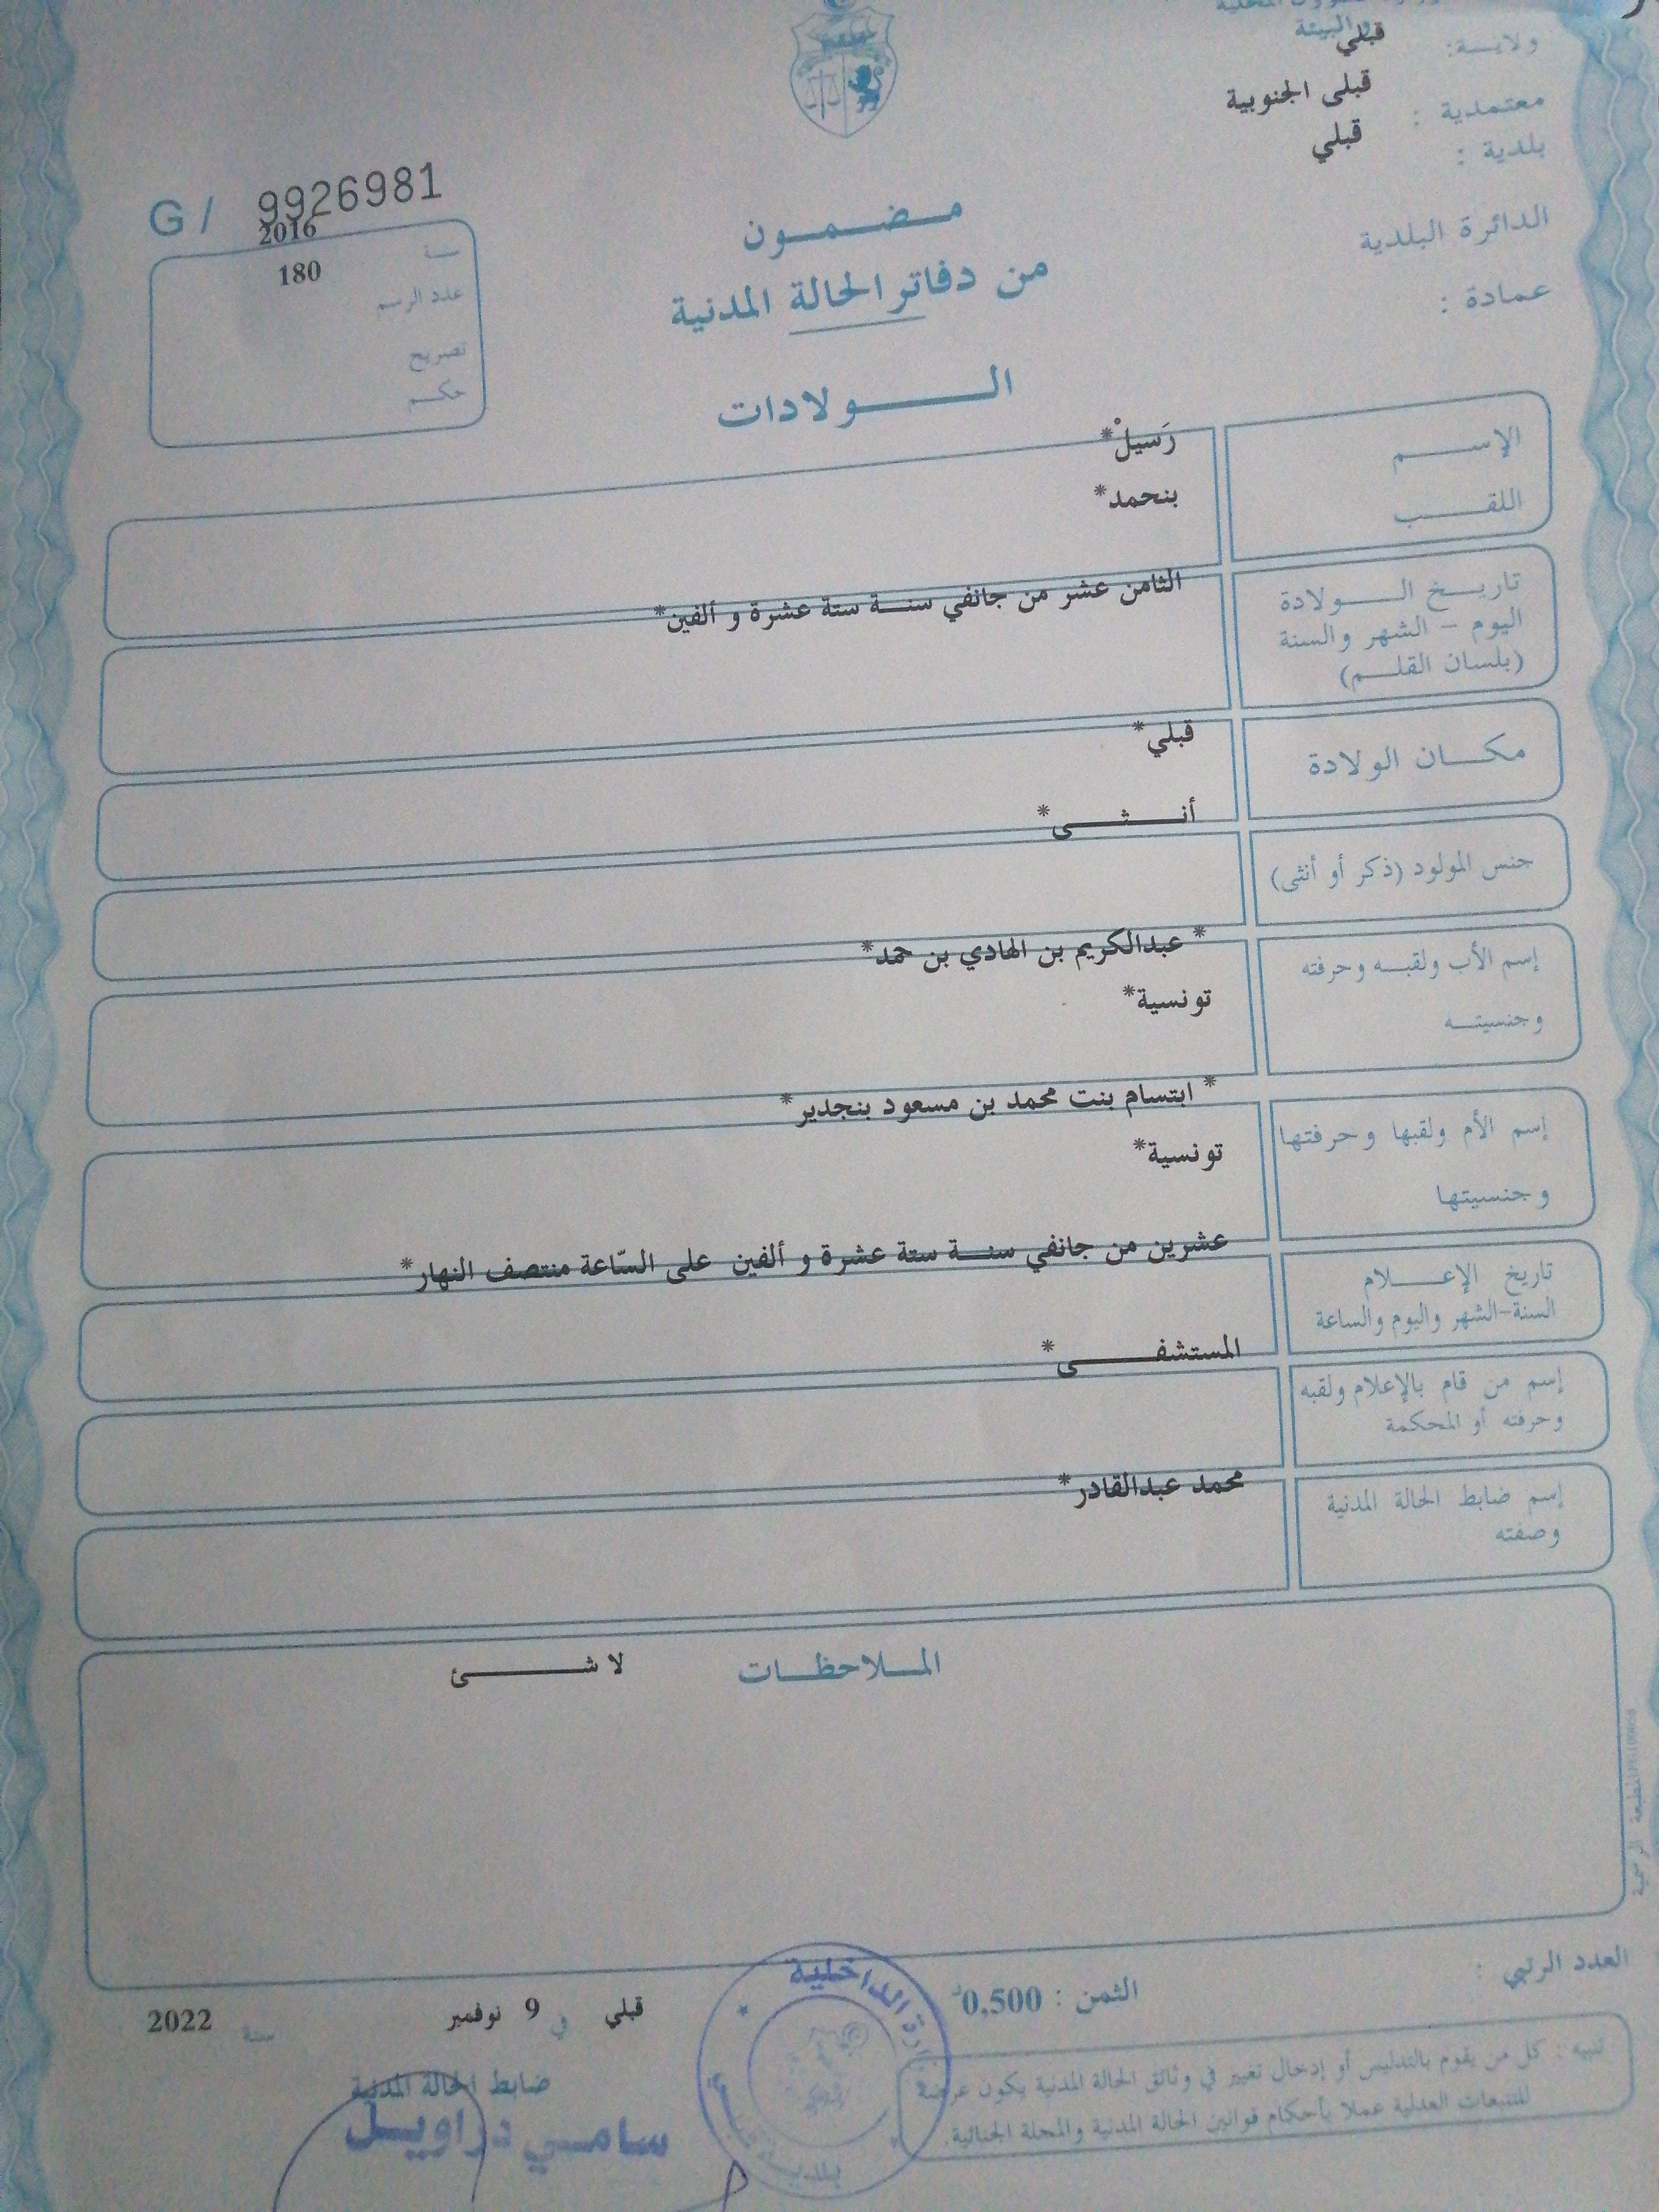 والبيئة
ولايـــة: قبلي
معتمدية : قبلى الجنوبية
بلدية : قبلي
الدائرة البلدية
عمادة :
G / 9926981
سنة 2016
عدد الرسم 180
تصريح
حكم
مضمون
من دفاتر الحالة المدنية
الولادات
الإسم رَسيلْ*
اللقب بنحمد*
تاريخ الولادة
اليوم - الشهر والسنة
(بلسان القلم)
الثامن عشر من جانفي سنة ستة عشرة و ألفين*
مكان الولادة قبلي*
جنس المولود (ذكر أو أنثى) أنثى*
إسم الأب ولقبه وحرفته * عبدالكريم بن الهادي بن حمد*
وجنسيته تونسية*
إسم الأم ولقبها وحرفتها * ابتسام بنت محمد بن مسعود بنجدير*
وجنسيتها تونسية*
تاريخ الإعلام
السنة-الشهر واليوم والساعة
عشرين من جانفي سنة ستة عشرة و ألفين على السّاعة منتصف النهار*
إسم من قام بالإعلام ولقبه
وحرفته أو المحكمة
المستشفى*
إسم ضابط الحالة المدنية
وصفته
محمد عبدالقادر*
الملاحظات لا شئ
المطبعة الرسمية
العدد الرتبي :
الثمن : 0,500د
قبلي في 9 نوفمبر سنة 2022
ضابط الحالة المدنية
سامي دراويل
الداخلية
بلدية
تنبيه : كل من يقوم بالتدليس أو إدخال تغيير في وثائق الحالة المدنية يكون عرضة
للتتبعات العدلية عملا بأحكام قوانين الحالة المدنية والمجلة الجنائية.